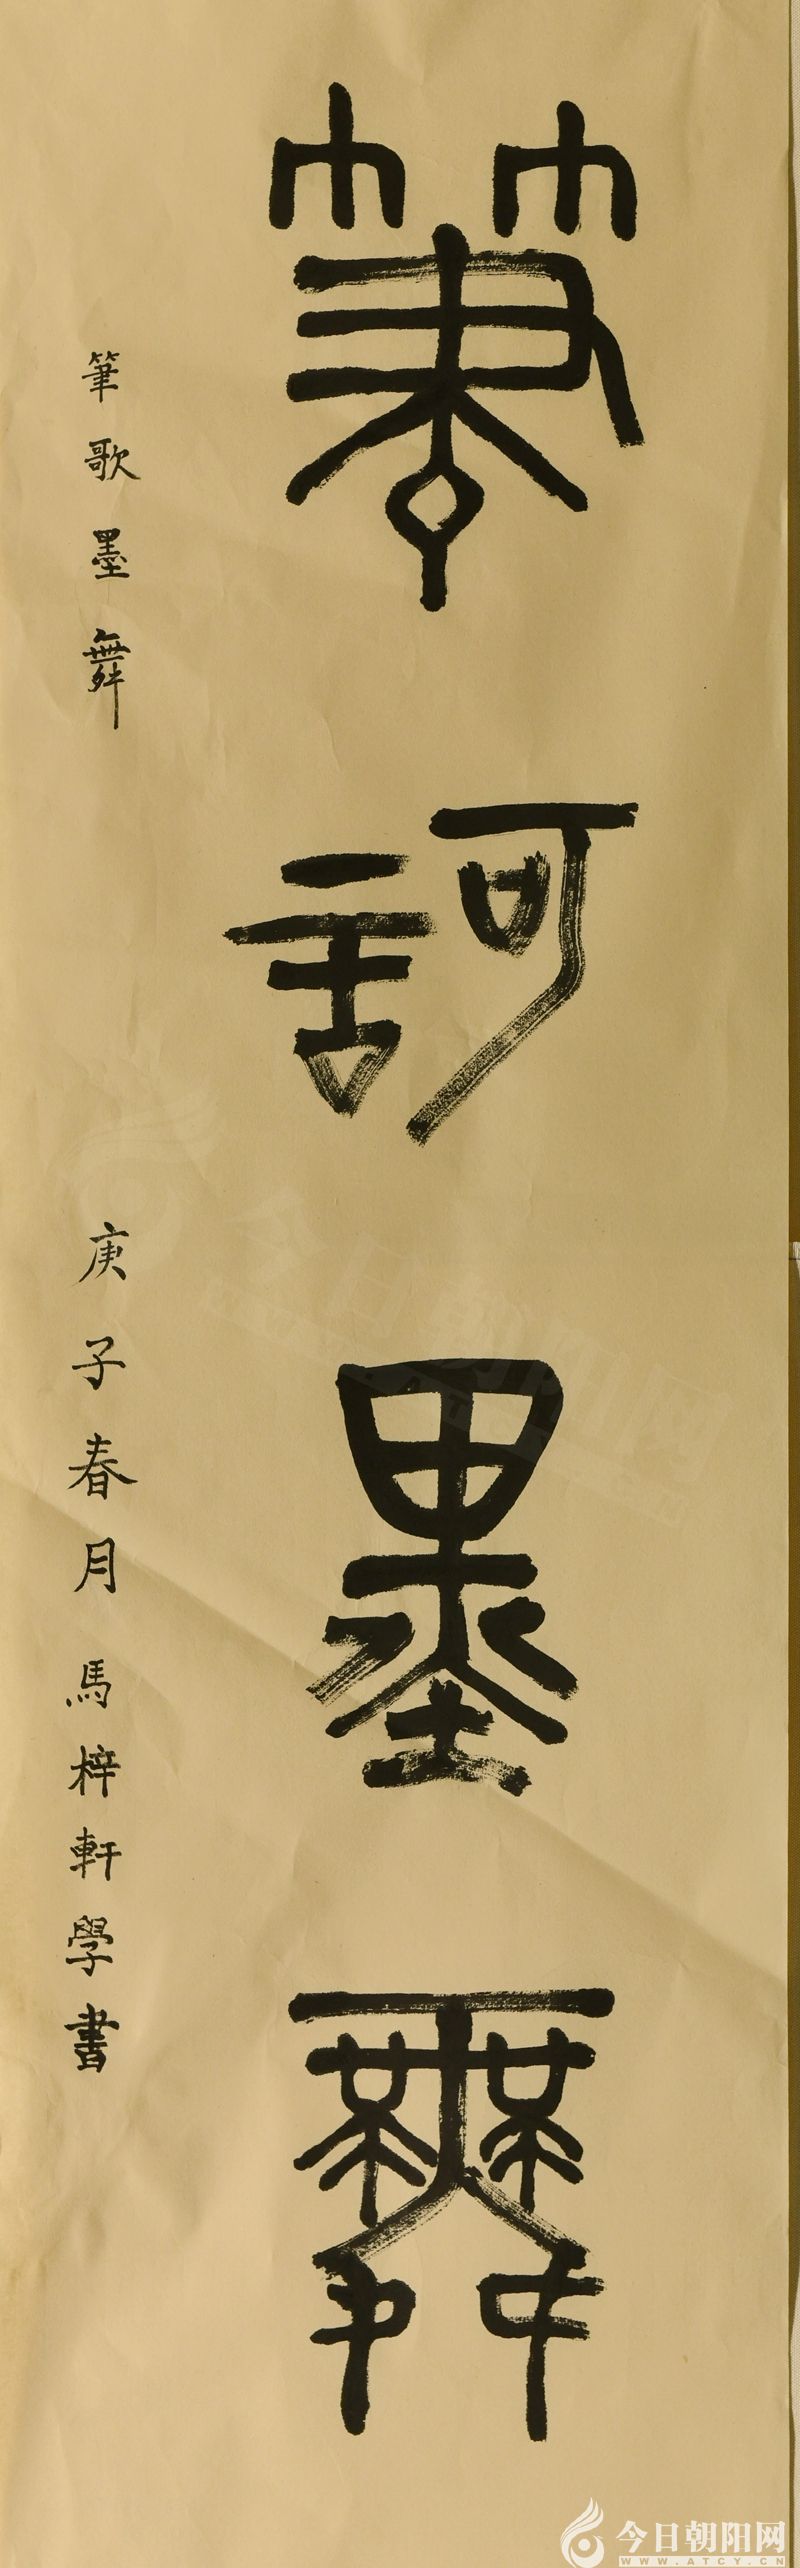 筆訶墨舞
筆歌墨舞
庚子春月馬梓軒學書
今日朝阳网
WWW.ATCY.CN